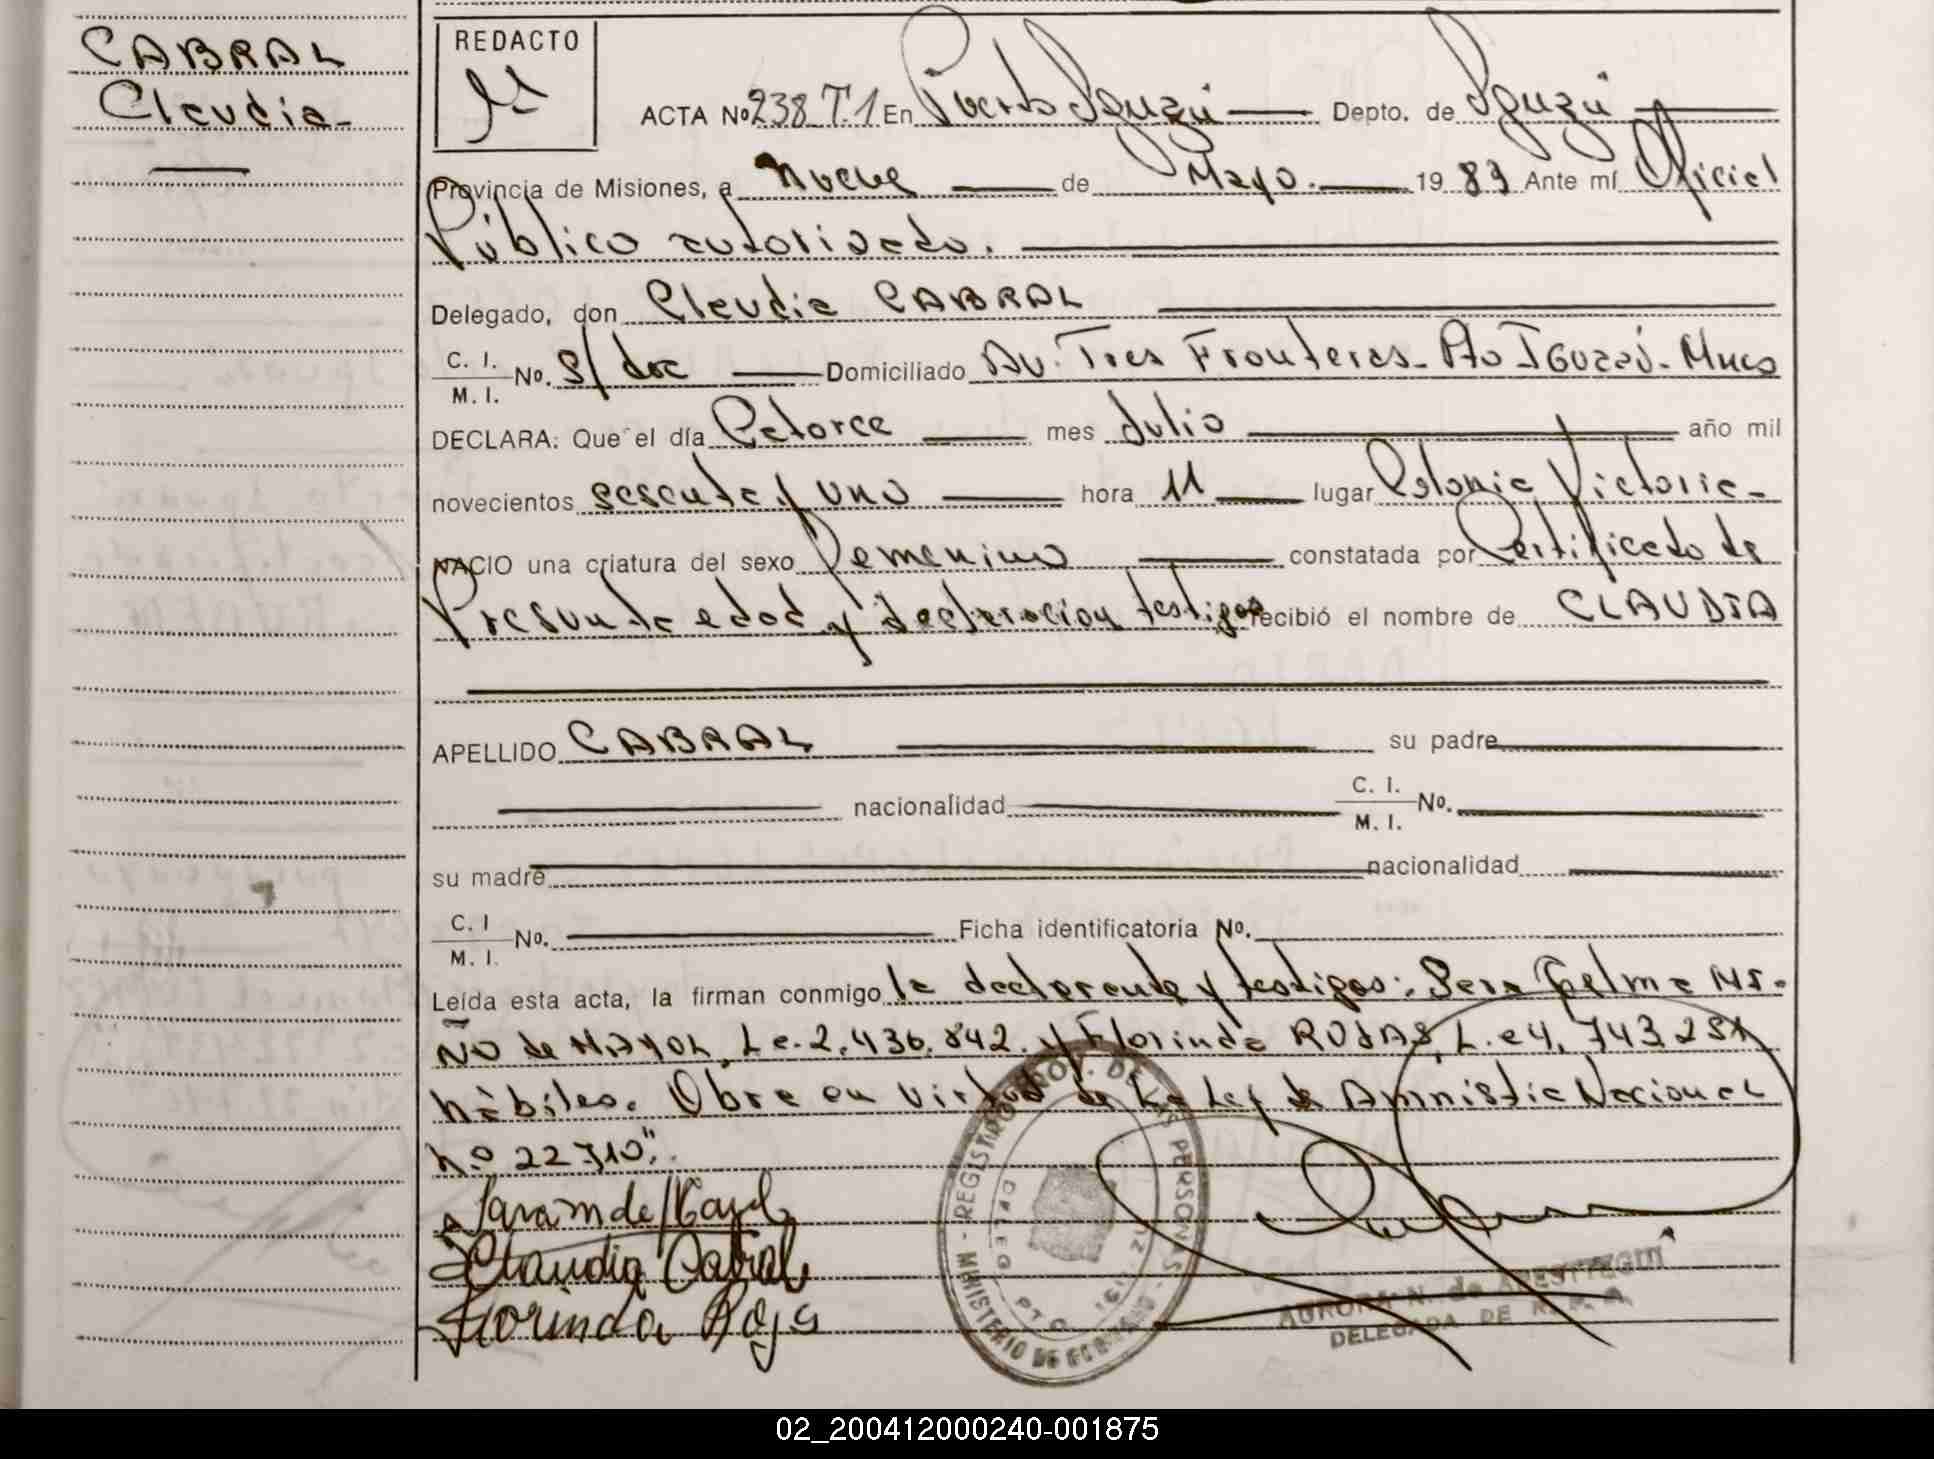 CABRAL
Claudia-
REDACTO
ACTA Nº 238 T.1 En Puerto Iguazú Depto. de Iguazú
Provincia de Misiones, a nueve de Mayo. 1983 Ante mí Oficial
Público autorizado.
Delegado, don Claudia CABRAL
C. I.
M. I. No. S/ doc Domiciliado Av. Tres Fronteras- Pto IGuazú- Mnes
DECLARA: Que el día Catorce mes Julio año mil
novecientos sesenta y uno hora 11 lugar Colonia Victoria-
NACIO una criatura del sexo Femenino constatada por Certificado de
Presunta edad y declaración testigos recibió el nombre de CLAUDIA
APELLIDO CABRAL su padre
nacionalidad C. I.
M. I. No.
su madre nacionalidad
C. I
M. I. No. Ficha identificatoria Nº.
Leída esta acta, la firman conmigo la declarante y testigos: Sara Telma MI-
ÑO de MAYOL, L.e. 2.436.842. y Florinda ROJAS, L.e 4.743.251
hábiles. Obra en virtud de La Ley de Amnistia Nacional
nº 22.710".
Sara M de Mayol
Claudia Cabral
Florinda Rojas
MINISTERIO DE GOBIERNO - REGISTRO PROV. DE LAS PERSONAS
DELEG. PTO. IGUAZU
AURORA N. de ARESTEGUI
DELEGADA DE R. P.
02_200412000240-001875